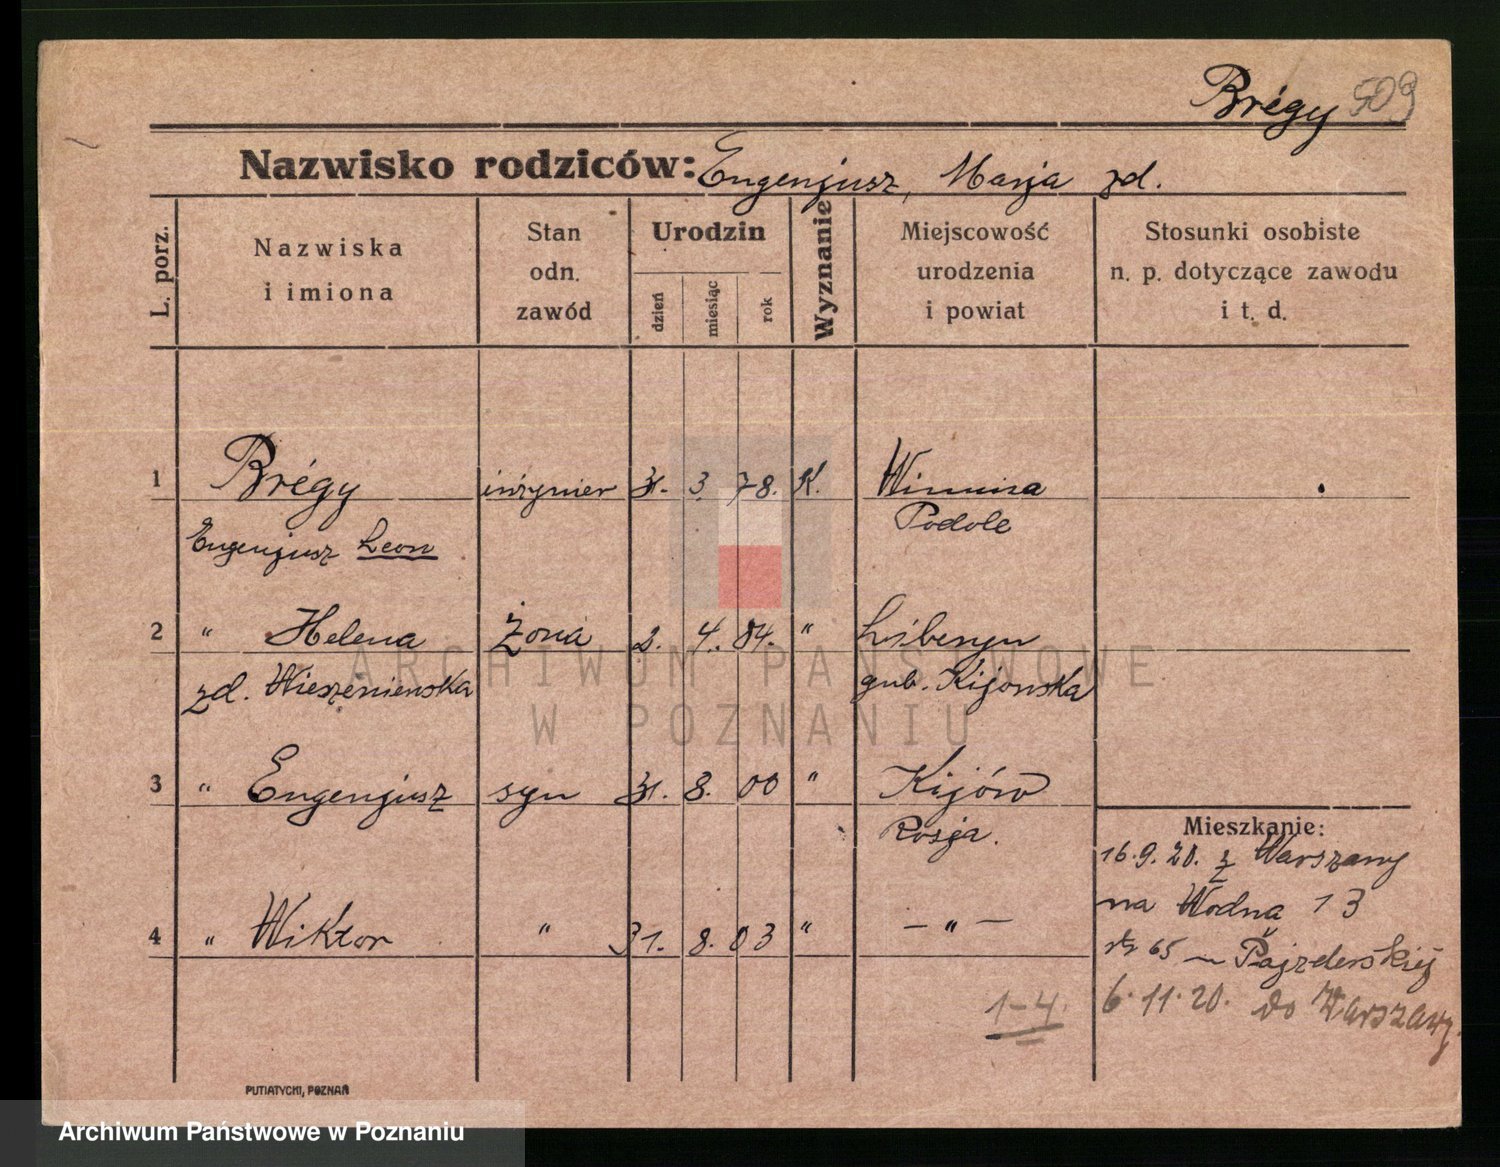 Brégy 509
Nazwisko rodziców: Eugenjusz, Marja zd.
L. porz.
Nazwiska
i imiona
Stan
odn.
zawód
Urodzin
dzień
miesiąc
rok
Wyznanie
Miejscowość
urodzenia
i powiat
Stosunki osobiste
n. p. dotyczące zawodu
i t. d.
1 Brégy inżynier 31. 3. 78. K.
Eugenjusz Leon Podole
2 " Helena Żona 2. 4. 84. "
zd. gub. Kijowska
3 " Eugenjusz syn 31. 8. 00 " Kijów
Rosja.
4 " Wiktor " 31. 8. 03 " — " —
1-4.
Mieszkanie:
16.9.20. z Warszawy
na Wodna 13
65 Pajzderskiej
6.11.20. do Warszawy.
PUTIATYCKI, POZNAŃ
ARCHIWUM PAŃSTWOWE
W POZNANIU
Archiwum Państwowe w Poznaniu